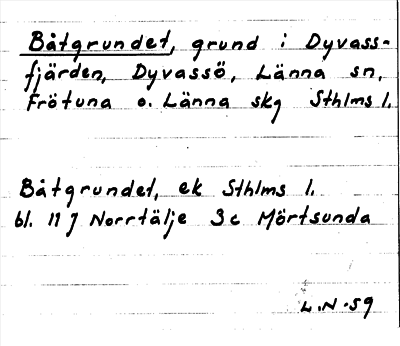 Båtgrundet, grund i Dyvass-
fjärden, Dyvassö, Länna sn,
Frötuna o. Länna skg Sthlms l.
Båtgrundet, ek Sthlms l.
bl. 11 J Norrtälje 3c Mörtsunda
L.N.59